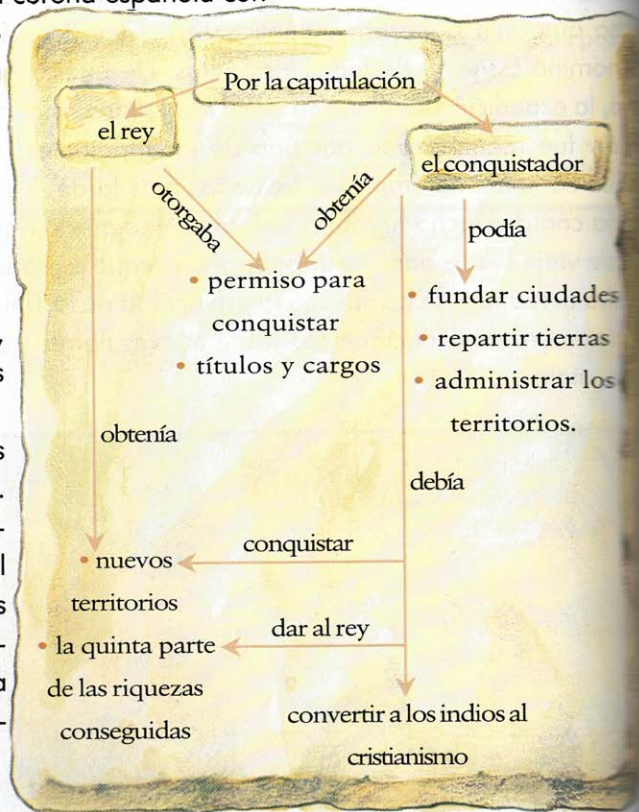 corona española con
Por la capitulación
el rey
el conquistador
otorgaba
obtenía
podía
• permiso para
conquistar
• títulos y cargos
• fundar ciudades
• repartir tierras
• administrar los
territorios.
obtenía
debía
conquistar
• nuevos
territorios
dar al rey
• la quinta parte
de las riquezas
conseguidas
convertir a los indios al
cristianismo